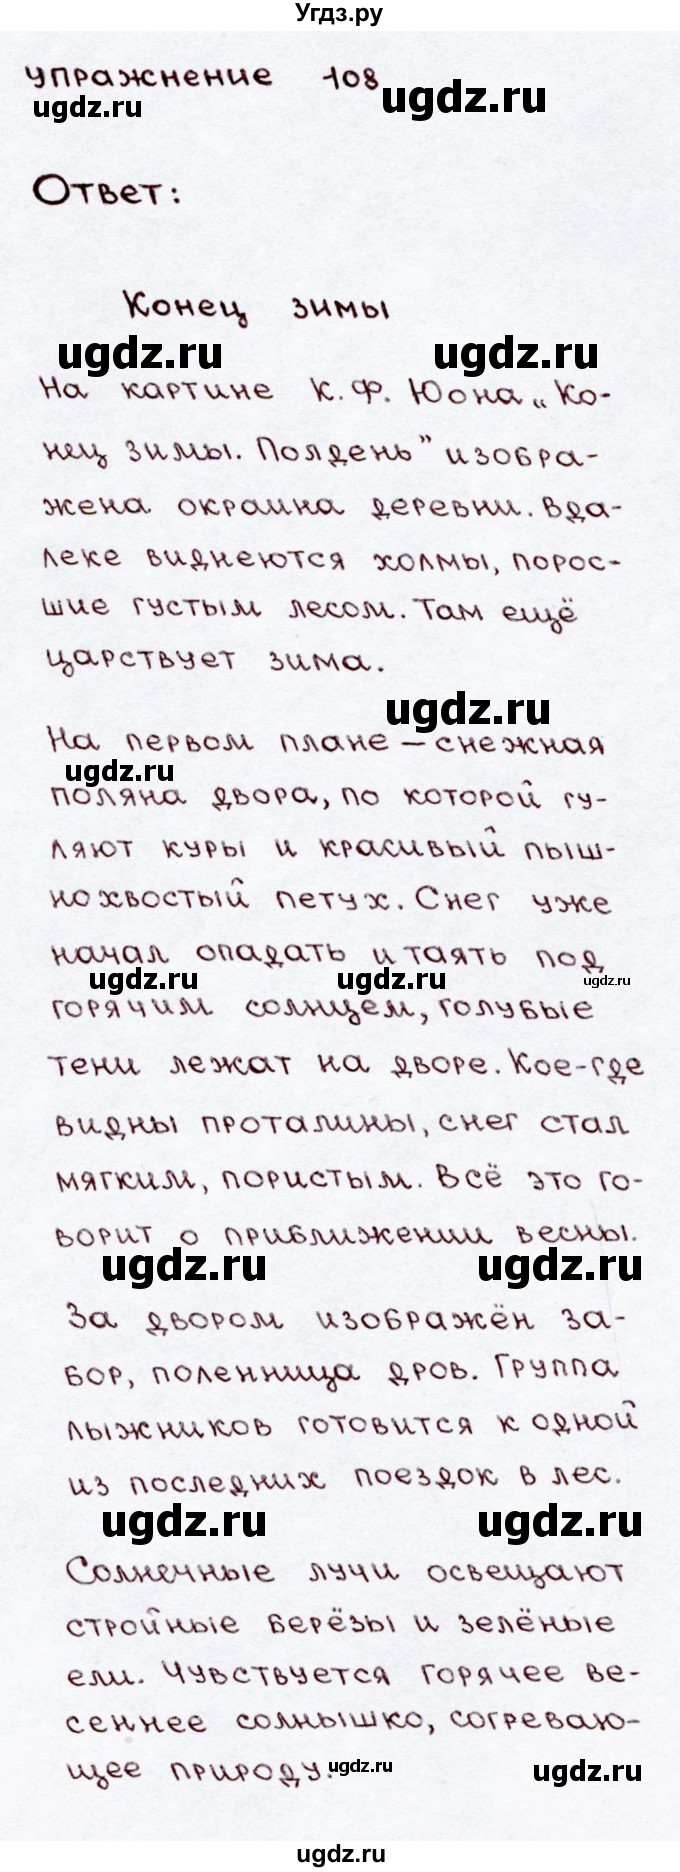 Угдз.ру
упражнение 108
ugdz.ru ugdz.ru
Ответ:
Конец зимы
ugdz.ru ugdz.ru
На картине К.Ф. Юона „Ко-
нец зимы. Полдень” изобра-
жена окраина деревни. Вда-
леке виднеются холмы, порос-
шие густым лесом. Там ещё
царствует зима.
ugdz.ru
На первом плане – снежная
ugdz.ru
поляна двора, по которой гу-
ляют куры и красивый пыш-
нохвостый петух. Снег уже
начал опадать и таять под
ugdz.ru ugdz.ru ugdz.ru
горячим солнцем, голубые
тени лежат на дворе. Кое-где
видны проталины, снег стал
мягким, пористым. Всё это го-
ворит о приближении весны.
ugdz.ru ugdz.ru
За двором изображён за-
бор, поленница дров. Группа
лыжников готовится к одной
из последних поездок в лес.
ugdz.ru ugdz.ru
Солнечные лучи освещают
стройные берёзы и зелёные
ели. Чувствуется горячее ве-
сеннее солнышко, согреваю-
щее природу.
ugdz.ru ugdz.ru
ugdz.ru